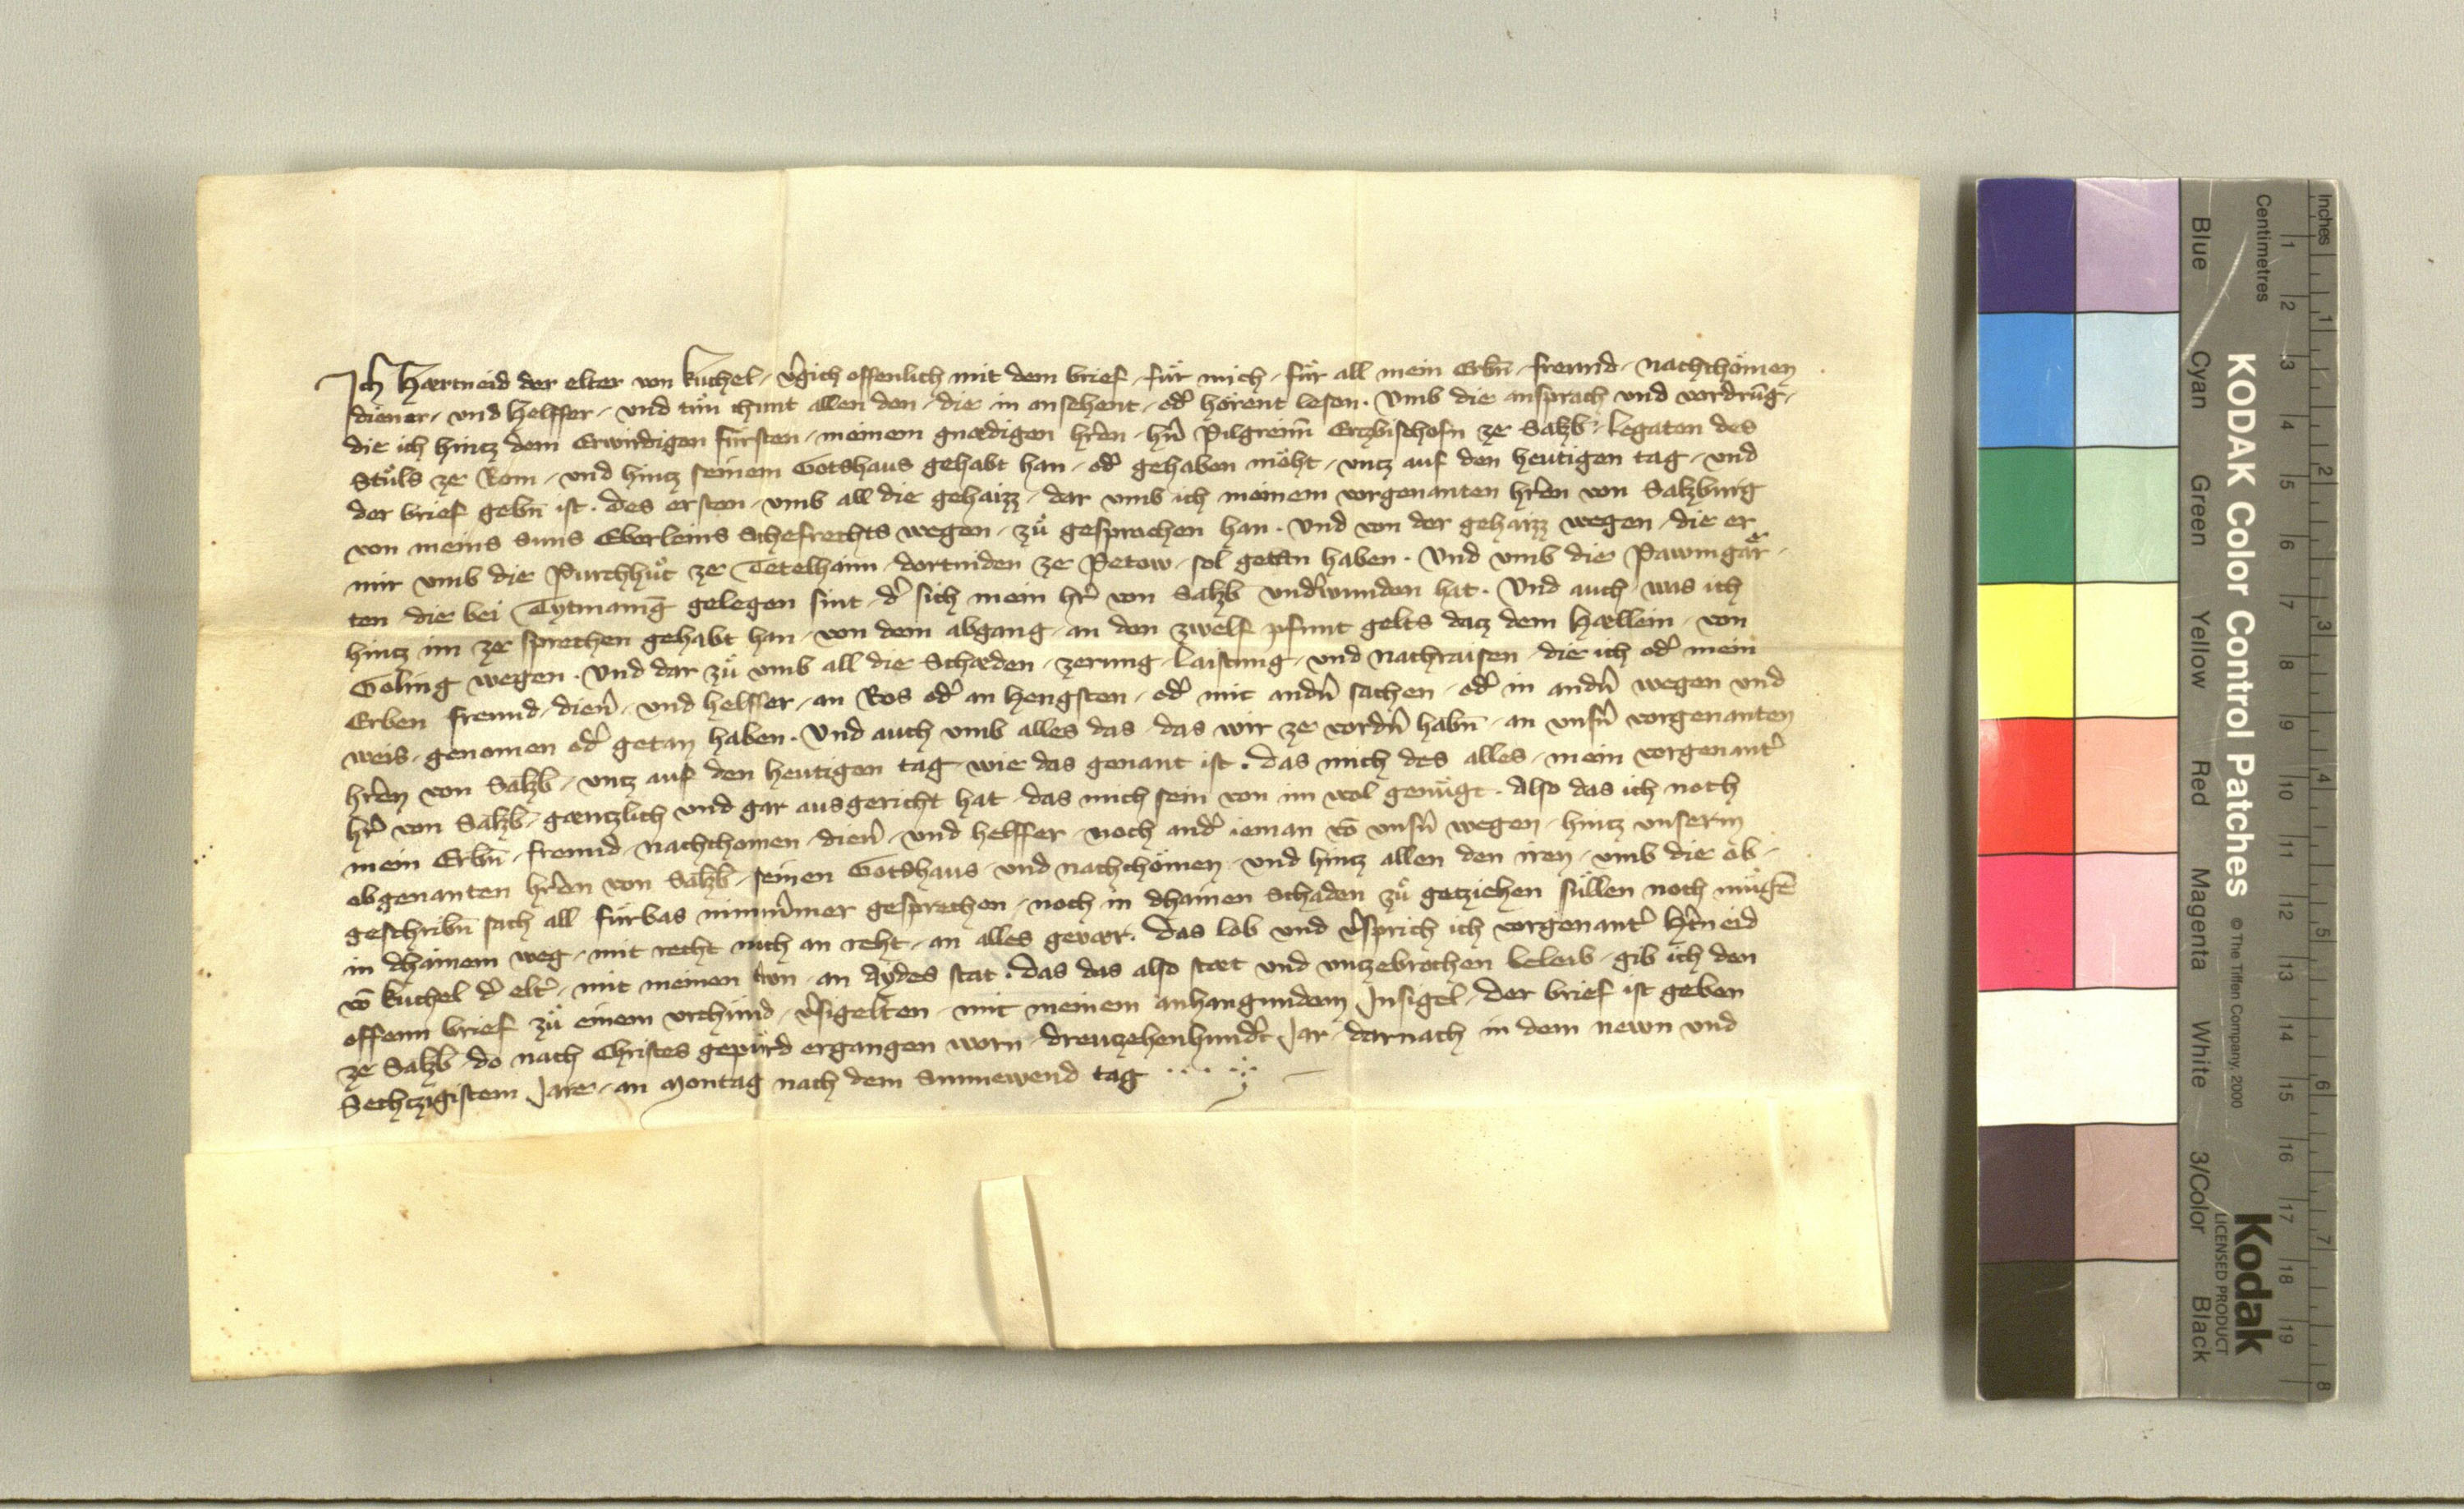 Ich Hærtneid der elter von kuchel, v̾gich offenlich mit dem brief, für mich, für all mein Erbn̄, freund, nachchömen
diener, vnd helffer, vnd tün chunt allen den, die in ansehent, od̾ hörent lesen. Vmb die ansprach vnd vordrūg,
die ich hintz dem Erwirdigen fürsten, meinem gnædigen hr̾en, hn̄ Pilgreim̄ Ertzbischofn ze Salzb̾, Legaten des
Stůls ze Rom, vnd hintz seinem Gotshaus gehabt han, od̾ gehaben möht, vntz auf den heutigen tag, vnd
der brief gebn̄ ist. des ersten, vmb all die gehaizz, dar vmb ich meinem vorgenanten hr̾en von Salzburg
von meins suns Eberleins Schefrechts wegen, zů gesprochen han. Vnd von der gehaizz wegen, die er
mir vmb die Purchhůt ze Tetelhaim, dortniden ze Petow, sol getan haben. Vnd vmb die Pawmgår,
ten die bei Tytmanig̅ gelegen sint, d̾ sich mein hr̾ von Salzb̾ vnd̾wunden hat. Vnd auch was ich
hintz im ze sprechen gehabt han, von dem abgang, an den zwelf pfunt gelts datz dem Hællein, von
Goling wegen. Vnd dar zů vmb all die Schæden, zerung, Laistung, vnd Nachraisen, die ich od̾ mein
Erben freund, dien̾, vnd helffer, an Ros od̾ an hengsten, od̾ mit andn̾ sachen, od̾ in andn̾ wegen vnd
weis, genomen od̾ getan haben. Vnd auch vmb alles das, das wir ze vordn̾ habn̄, an vnsn̾ vorgenanten
hr̾en von Salzb̾, vntz auf den heutigen tag, wie das genant ist. das mich des alles, mein vorgenant̾
hr̾ von Salzb̾, gæntzlich vnd gar ausgericht hat, das mich sein von im wol genůgt. Also das ich noch
mein Erbn̄, freund, nachchomen, dien̾, vnd helffer, noch and̾ ieman vō vnsn̾ wegen, hintz vnserm
obgenanten hr̾en von Salzb̾, seinen Gotshaus, vnd nachchömen, vnd hintz allen den iren, vmb die ob,
geschribn̄ sach all fürbas nimm̾mer gesprechen, noch in dhainen Schaden zů getziehen süllen noch mügē
in dhainem weg, mit recht noch an reht, an alles gevær. Das lob vnd v̾sprich ich vorgenant̾ Hr̾tneid
vō kuchel d̾ elt̾, mit meinen trwn, an Aydes stat. Das das also stæt vnd vntzebrochen beleib, gib ich den
offenn brief zů einem vrchünd, v̾sigelten, mit meinem anhangundem Insigel, Der brief ist geben
ze Salzb̾, do nach Christes gepürd ergangen worn, dreutzehenhund̾t Jar, darnach in dem newn vnd
Sechtzigistem Jare, an Montag nach dem Sunnewend tag
KODAK Color Control Patches
© The Tiffen Company, 2000
Kodak
LICENSED PRODUCT
Inches 1 2 3 4 5 6 7 8
Centimetres 1 2 3 4 5 6 7 8 9 10 11 12 13 14 15 16 17 18 19
Blue Cyan Green Yellow Red Magenta White 3/Color Black